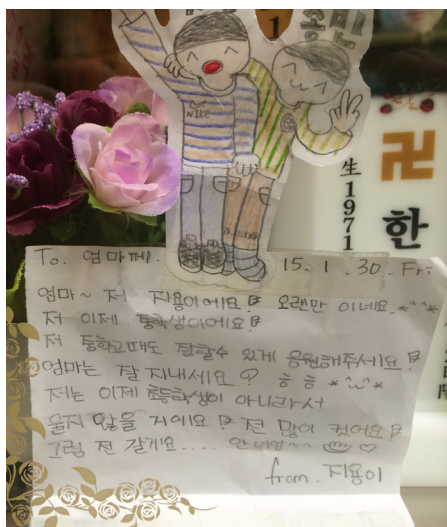 1
NIKE
卍
한
生1971
To. 엄마께. 15. 1. 30. Fri
엄마~ 저 지용이에요! 오랜만 이네요. *^^*
저 이제 중학생이어요!
저 중학교때도 잘할수 있게 응원해주세요!
엄마는 잘지내세요? ㅎㅎ *^^*
저는 이제 초등학생이 아니라서
울지 않을 거에요! 전 많이 컸어요!
그럼 전 갈게요.... 안녕~~ ♡
from. 지용이